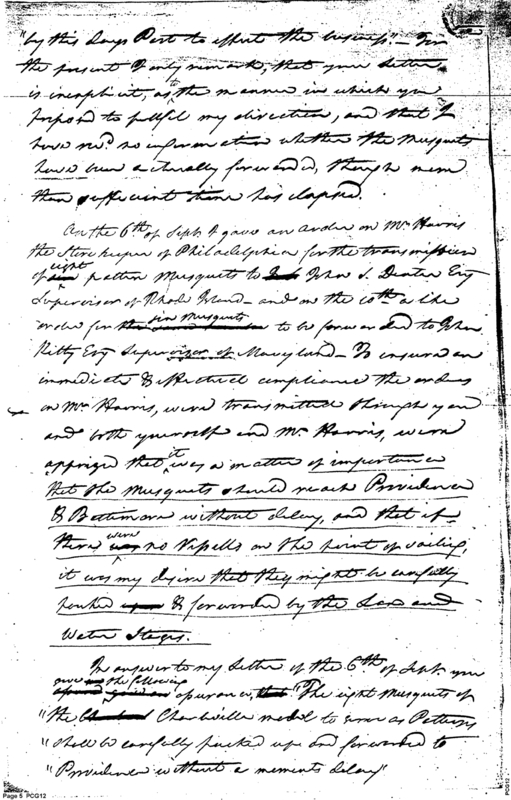 "by this days Post to effect the business."— For
the present I only remark, that your letter
is inexplicit, as to the manner in which you
propose to fulfil my direction, and that I
have recd. no information whether the Musquets
have been actually forwarded, though more
than sufficient time has elapsed.
On the 6th of Sept. I gave an order on Mr. Harris
the Store keeper of Philadelphia for the transmission
of eight pattern Musquets to John S. Dexter Esq
Supervisor of Rhode Island— and on the 10th a like
order for six Musquets to be forwarded to John
Kilty Esq Supervisor of Maryland— To insure an
immediate & effectual compliance the orders
on Mr. Harris, were transmitted through you
and both yourself and Mr. Harris, were
apprized that it was a matter of importance
that the Musquets should reach Providence
& Baltimore without delay, and that if
there were no Vessells on the point of sailing,
it was my desire that they might be carefully
packed & forwarded by the Land and
Water Stages.
In answer to my letter of the 6th of Sept. you
gave the following
assurance, "The eight Musquets of
"the Charlville model to serve as Patterns
"shall be carefully packed up and forwarded to
"Providence without a moments delay"
Page 5 PCG12
PCG12